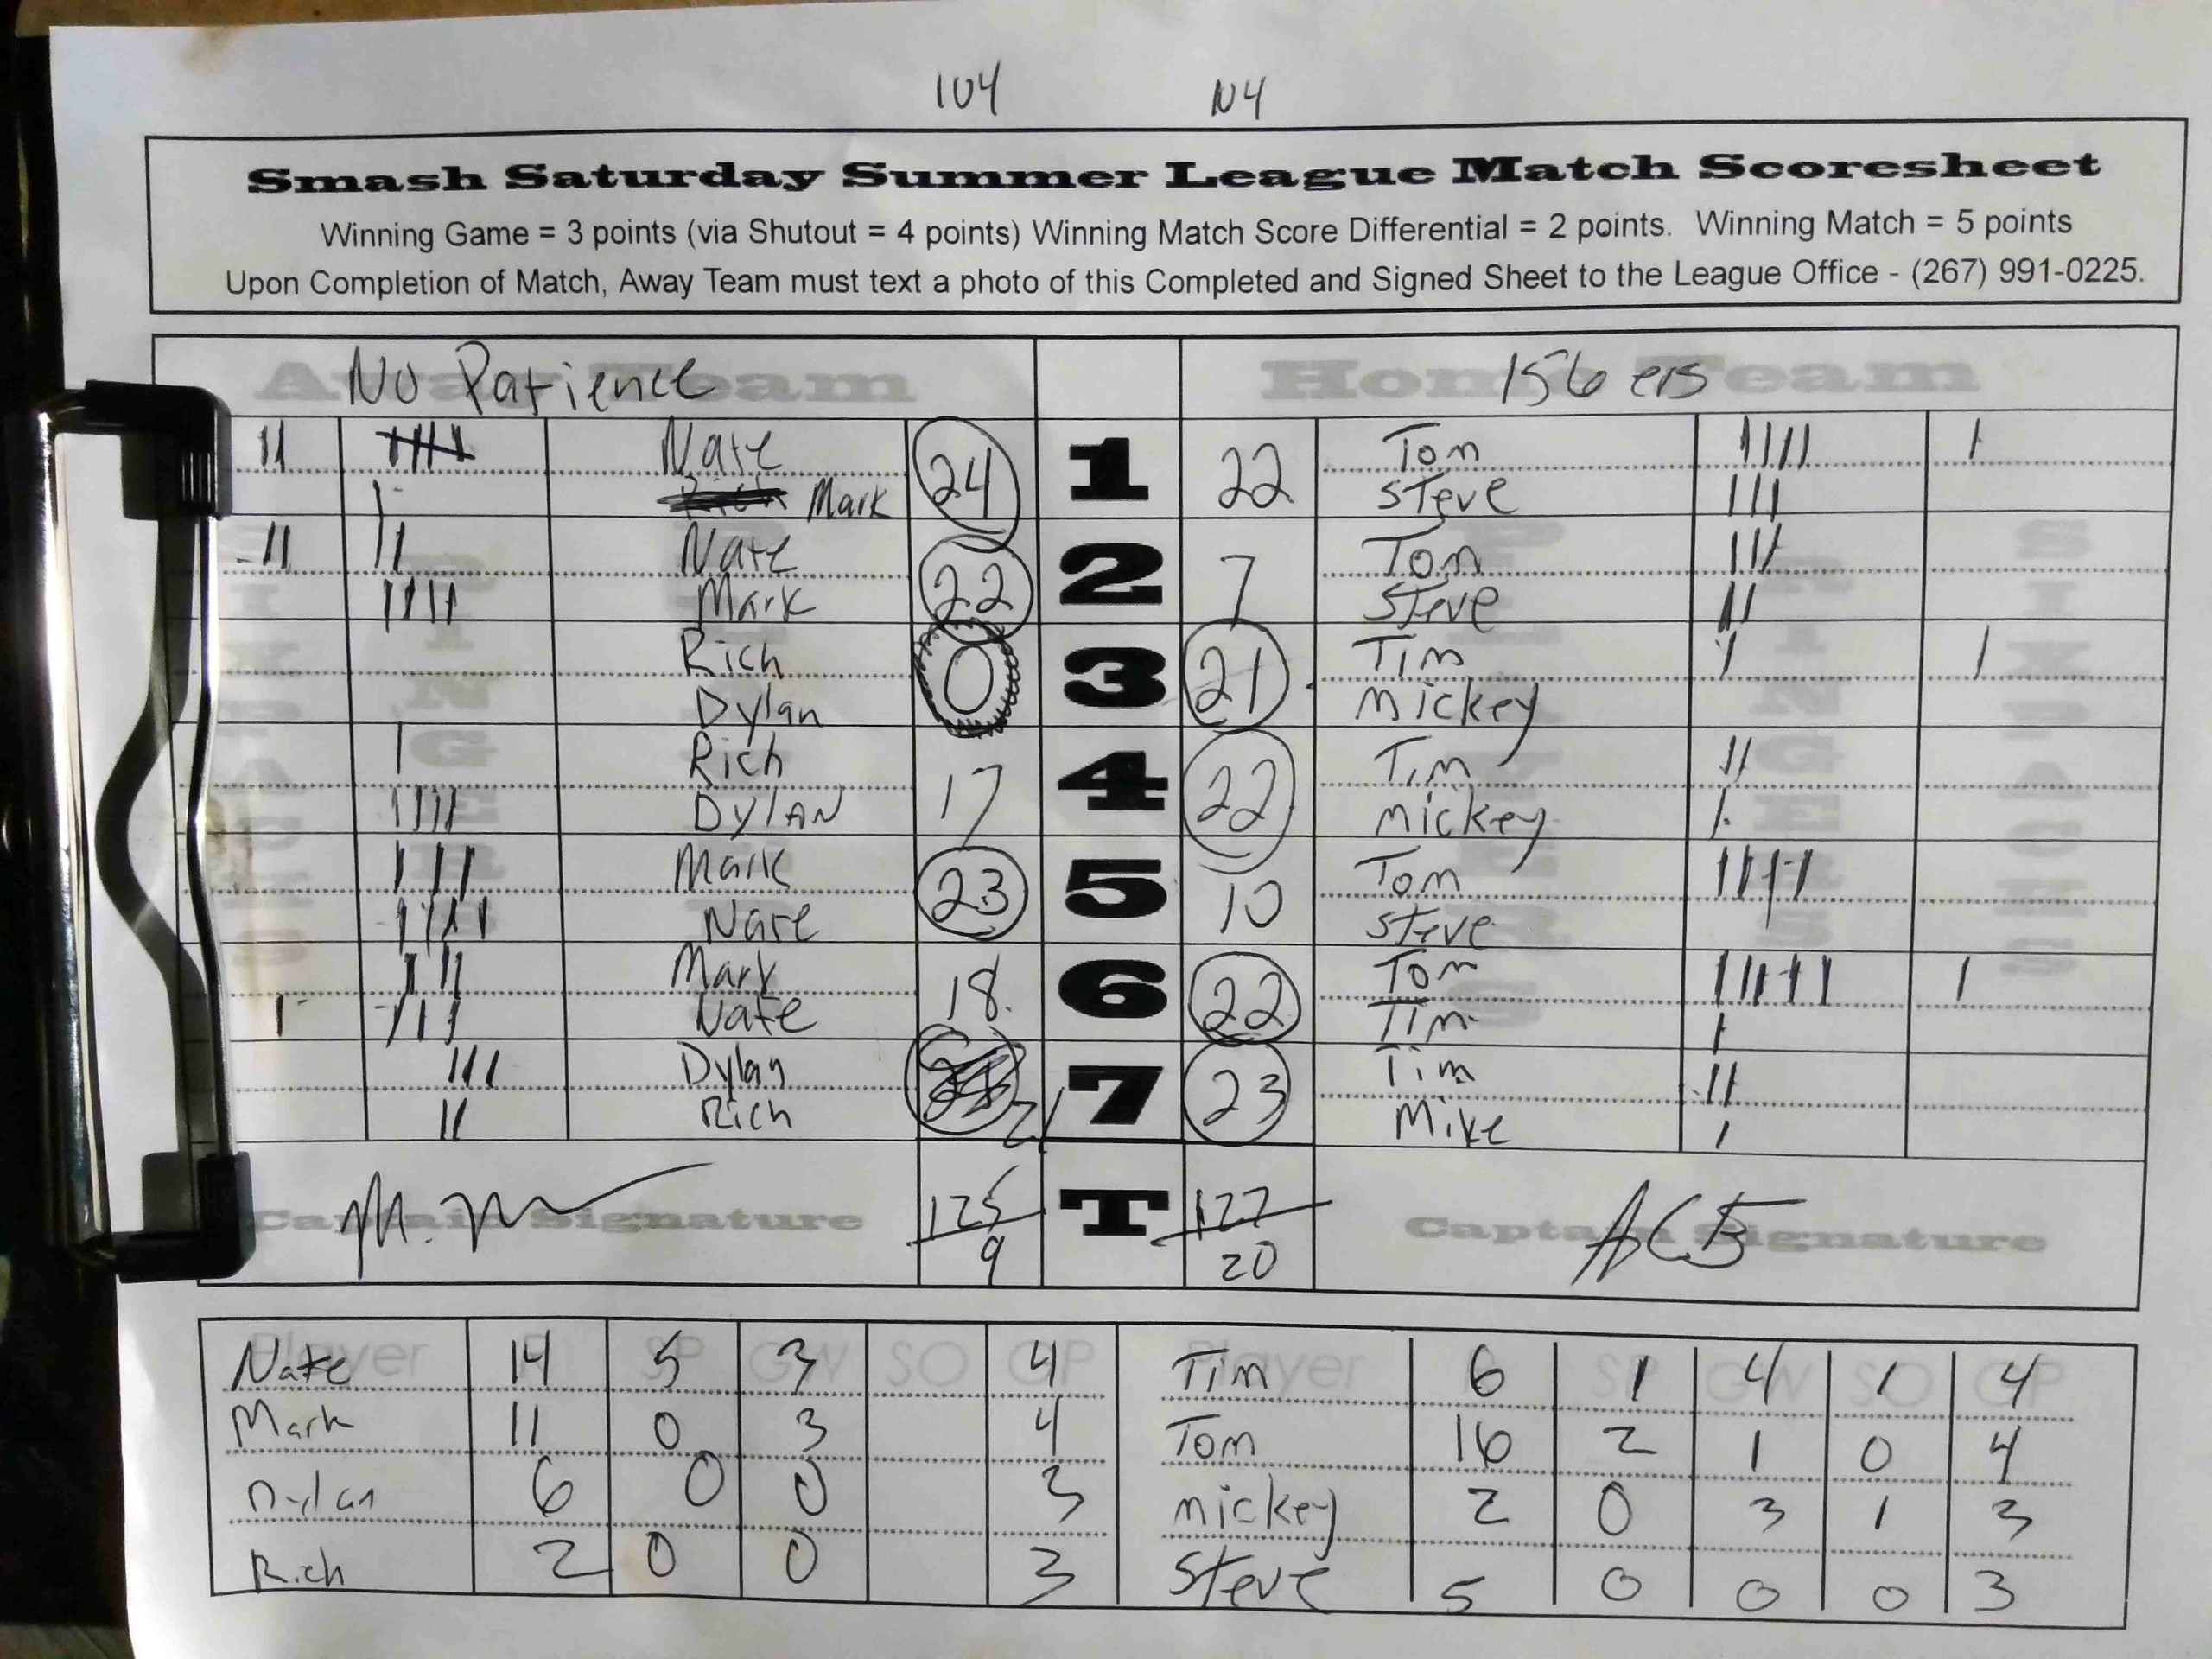 104 N4
Smash Saturday Summer League Match Scoresheet
Winning Game = 3 points (via Shutout = 4 points) Winning Match Score Differential = 2 points. Winning Match = 5 points
Upon Completion of Match, Away Team must text a photo of this Completed and Signed Sheet to the League Office - (267) 991-0225.
Away Team Home Team
No Patience 156ers
Nate 24 1 22 Tom
Mark Steve
Nate 22 2 7 Tom
Mark Steve
Rich 0 3 21 Tim
Dylan Mickey
Rich 17 4 22 Tim
DYLAN Mickey
Mark 23 5 10 Tom
Nate Steve
Mark 18 6 22 Tom
Nate Tim
Dylan 21 7 23 Tim
Rich Mike
Captain Signature 125 T 127 Captain Signature
9 20 ACB
Player SP GW SO GP Player SP GW SO GP
Nate 14 5 3 4 Tim 6 1 4 1 4
Mark 11 0 3 4 Tom 16 2 1 0 4
Dylan 6 0 0 3 Mickey 2 0 3 1 3
Rich 2 0 0 3 Steve 5 0 0 0 3